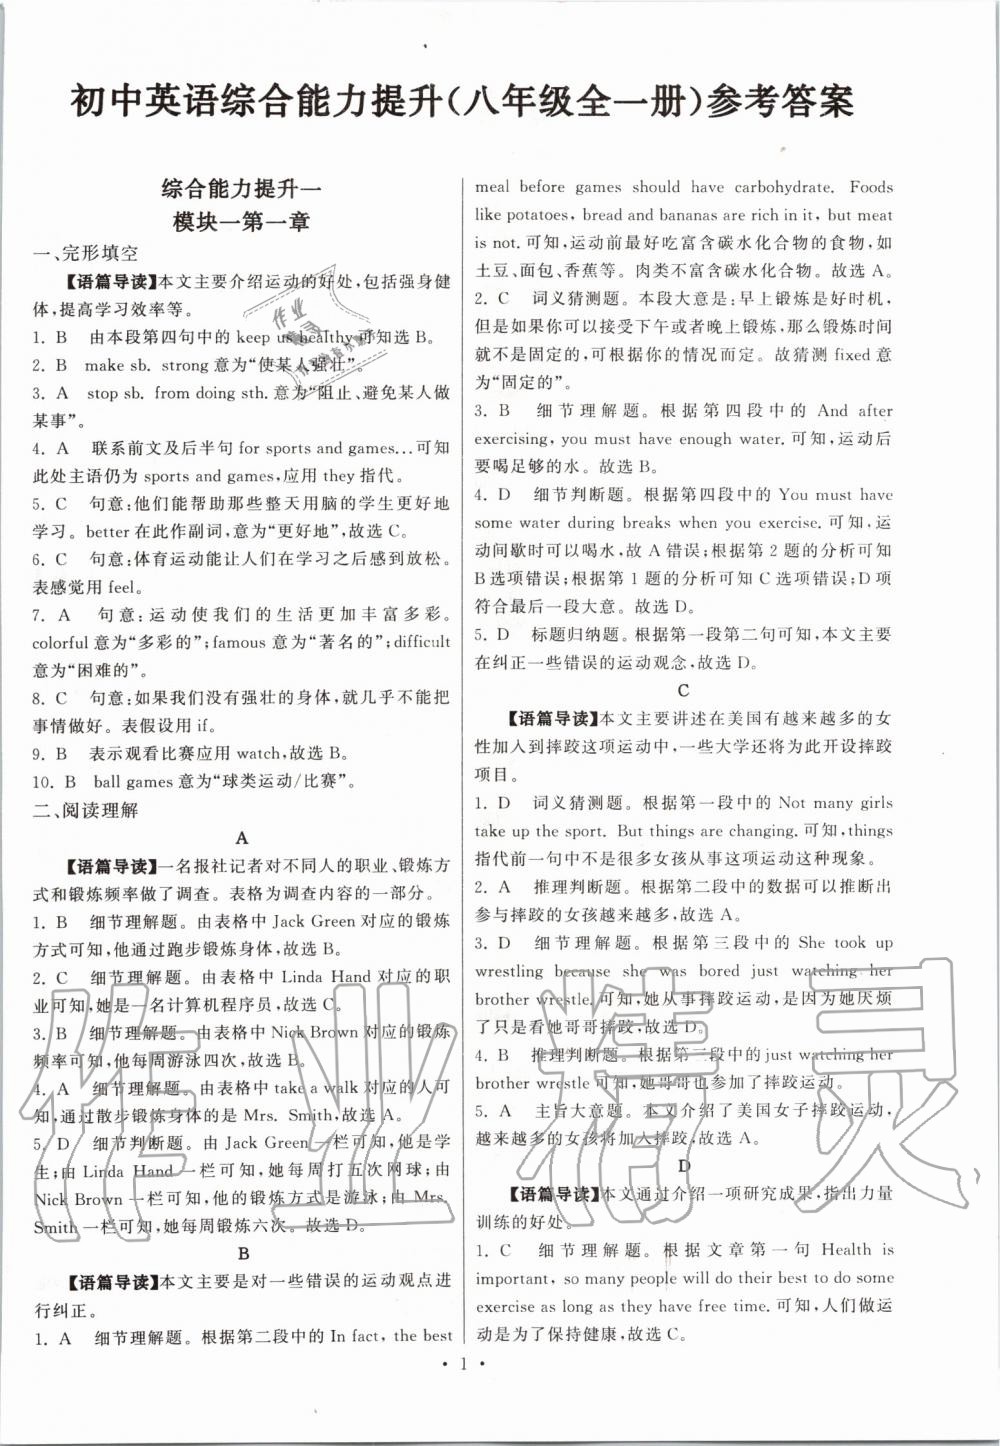 初中英语综合能力提升(八年级全一册)参考答案
综合能力提升一
模块一第一章
一、完形填空
【语篇导读】本文主要介绍运动的好处,包括强身健
体,提高学习效率等。
1. B 由本段第四句中的 keep us healthy 可知选 B。
2. B make sb. strong 意为“使某人强壮”。
3. A stop sb. from doing sth. 意为“阻止、避免某人做
某事”。
4. A 联系前文及后半句 for sports and games…可知
此处主语仍为 sports and games,应用 they 指代。
5. C 句意:他们能帮助那些整天用脑的学生更好地
学习。better 在此作副词,意为“更好地”,故选 C。
6. C 句意:体育运动能让人们在学习之后感到放松。
表感觉用 feel。
7. A 句意:运动使我们的生活更加丰富多彩。
colorful 意为“多彩的”;famous 意为“著名的”;difficult
意为“困难的”。
8. C 句意:如果我们没有强壮的身体,就几乎不能把
事情做好。表假设用 if。
9. B 表示观看比赛应用 watch,故选 B。
10. B ball games 意为“球类运动/比赛”。
二、阅读理解
A
【语篇导读】一名报社记者对不同人的职业、锻炼方
式和锻炼频率做了调查。表格为调查内容的一部分。
1. B 细节理解题。由表格中 Jack Green 对应的锻炼
方式可知,他通过跑步锻炼身体,故选 B。
2. C 细节理解题。由表格中 Linda Hand 对应的职
业可知,她是一名计算机程序员,故选 C。
3. B 细节理解题。由表格中 Nick Brown 对应的锻炼
频率可知,他每周游泳四次,故选 B。
4. A 细节理解题。由表格中 take a walk 对应的人可
知,通过散步锻炼身体的是 Mrs. Smith,故选 A。
5. D 细节判断题。由 Jack Green 一栏可知,他是学
生;由 Linda Hand 一栏可知,她每周打五次网球;由
Nick Brown 一栏可知,他的锻炼方式是游泳;由 Mrs.
Smith 一栏可知,她每周锻炼六次。故选 D。
B
【语篇导读】本文主要是对一些错误的运动观点进
行纠正。
1. A 细节理解题。根据第二段中的 In fact, the best
meal before games should have carbohydrate. Foods
like potatoes, bread and bananas are rich in it, but meat
is not. 可知,运动前最好吃富含碳水化合物的食物,如
土豆、面包、香蕉等。肉类不富含碳水化合物。故选 A。
2. C 词义猜测题。本段大意是:早上锻炼是好时机,
但是如果你可以在下午或者晚上锻炼,那么锻炼时间
就不是固定的,可根据你的情况而定。故猜测 fixed 意
为“固定的”。
3. B 细节理解题。根据第四段中的 And after
exercising, you must have enough water. 可知,运动后
要喝足够的水。故选 B。
4. D 细节判断题。根据第四段中的 You must have
some water during breaks when you exercise. 可知,运
动间歇时可以喝水,故 A 错误;根据第 2 题的分析可知
B 选项错误;根据第 1 题的分析可知 C 选项错误;D 项
符合最后一段大意。故选 D。
5. D 标题归纳题。根据第一段第二句可知,本文主要
在纠正一些错误的运动观念,故选 D。
C
【语篇导读】本文主要讲述在美国有越来越多的女
性加入到摔跤这项运动中,一些大学还将为此开设摔跤
项目。
1. D 词义猜测题。根据第一段中的 Not many girls
take up the sport. But things are changing. 可知,things
指代前一句中不是很多女孩从事这项运动这种现象。
2. A 推理判断题。根据第二段中的数据可以推断出
参与摔跤的女孩越来越多,故选 A。
3. D 细节理解题。根据第三段中的 She took up
wrestling because she was bored just watching her
brother wrestle. 可知,她从事摔跤运动,是因为她厌烦
了只是看她哥哥摔跤,故选 D。
4. B 推理判断题。根据第三段中的 just watching her
brother wrestle 可知,她哥哥也参加了摔跤运动。
5. A 主旨大意题。本文介绍了美国女子摔跤运动,
越来越多的女孩将加入摔跤,故选 A。
D
【语篇导读】本文通过介绍一项研究成果,指出力量
训练的好处。
1. C 细节理解题。根据文章第一句 Health is
important, so many people will do their best to do some
exercise as long as they have free time. 可知,人们做运
动是为了保持健康,故选 C。
• 1 •
作业精灵